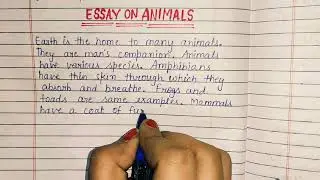 ESSAY ON ANIMALS
Earth is the home to many animals.
They are man's companion. Animals
have various species. Amphibians
have thin skin through which they
absorb and breathe. Frogs and
toads are same examples. Mammals
have a coat of fu